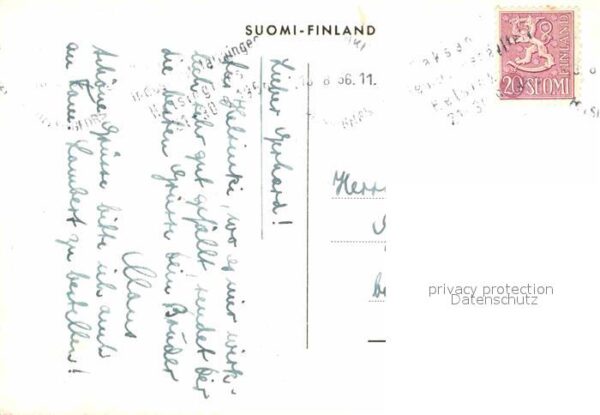 SUOMI-FINLAND
FINLAND
20 SUOMI
8 56.11
Lieber Gerhard!
Aus Helsinki, wo es mir wirk-
lich sehr gut gefällt sendet dir
die besten Grüsse dein Bruder
Klaus
Schöne Grüsse bitte ich auch
an Fam. Lambert zu bestellen!
Herrn
privacy protection
Datenschutz